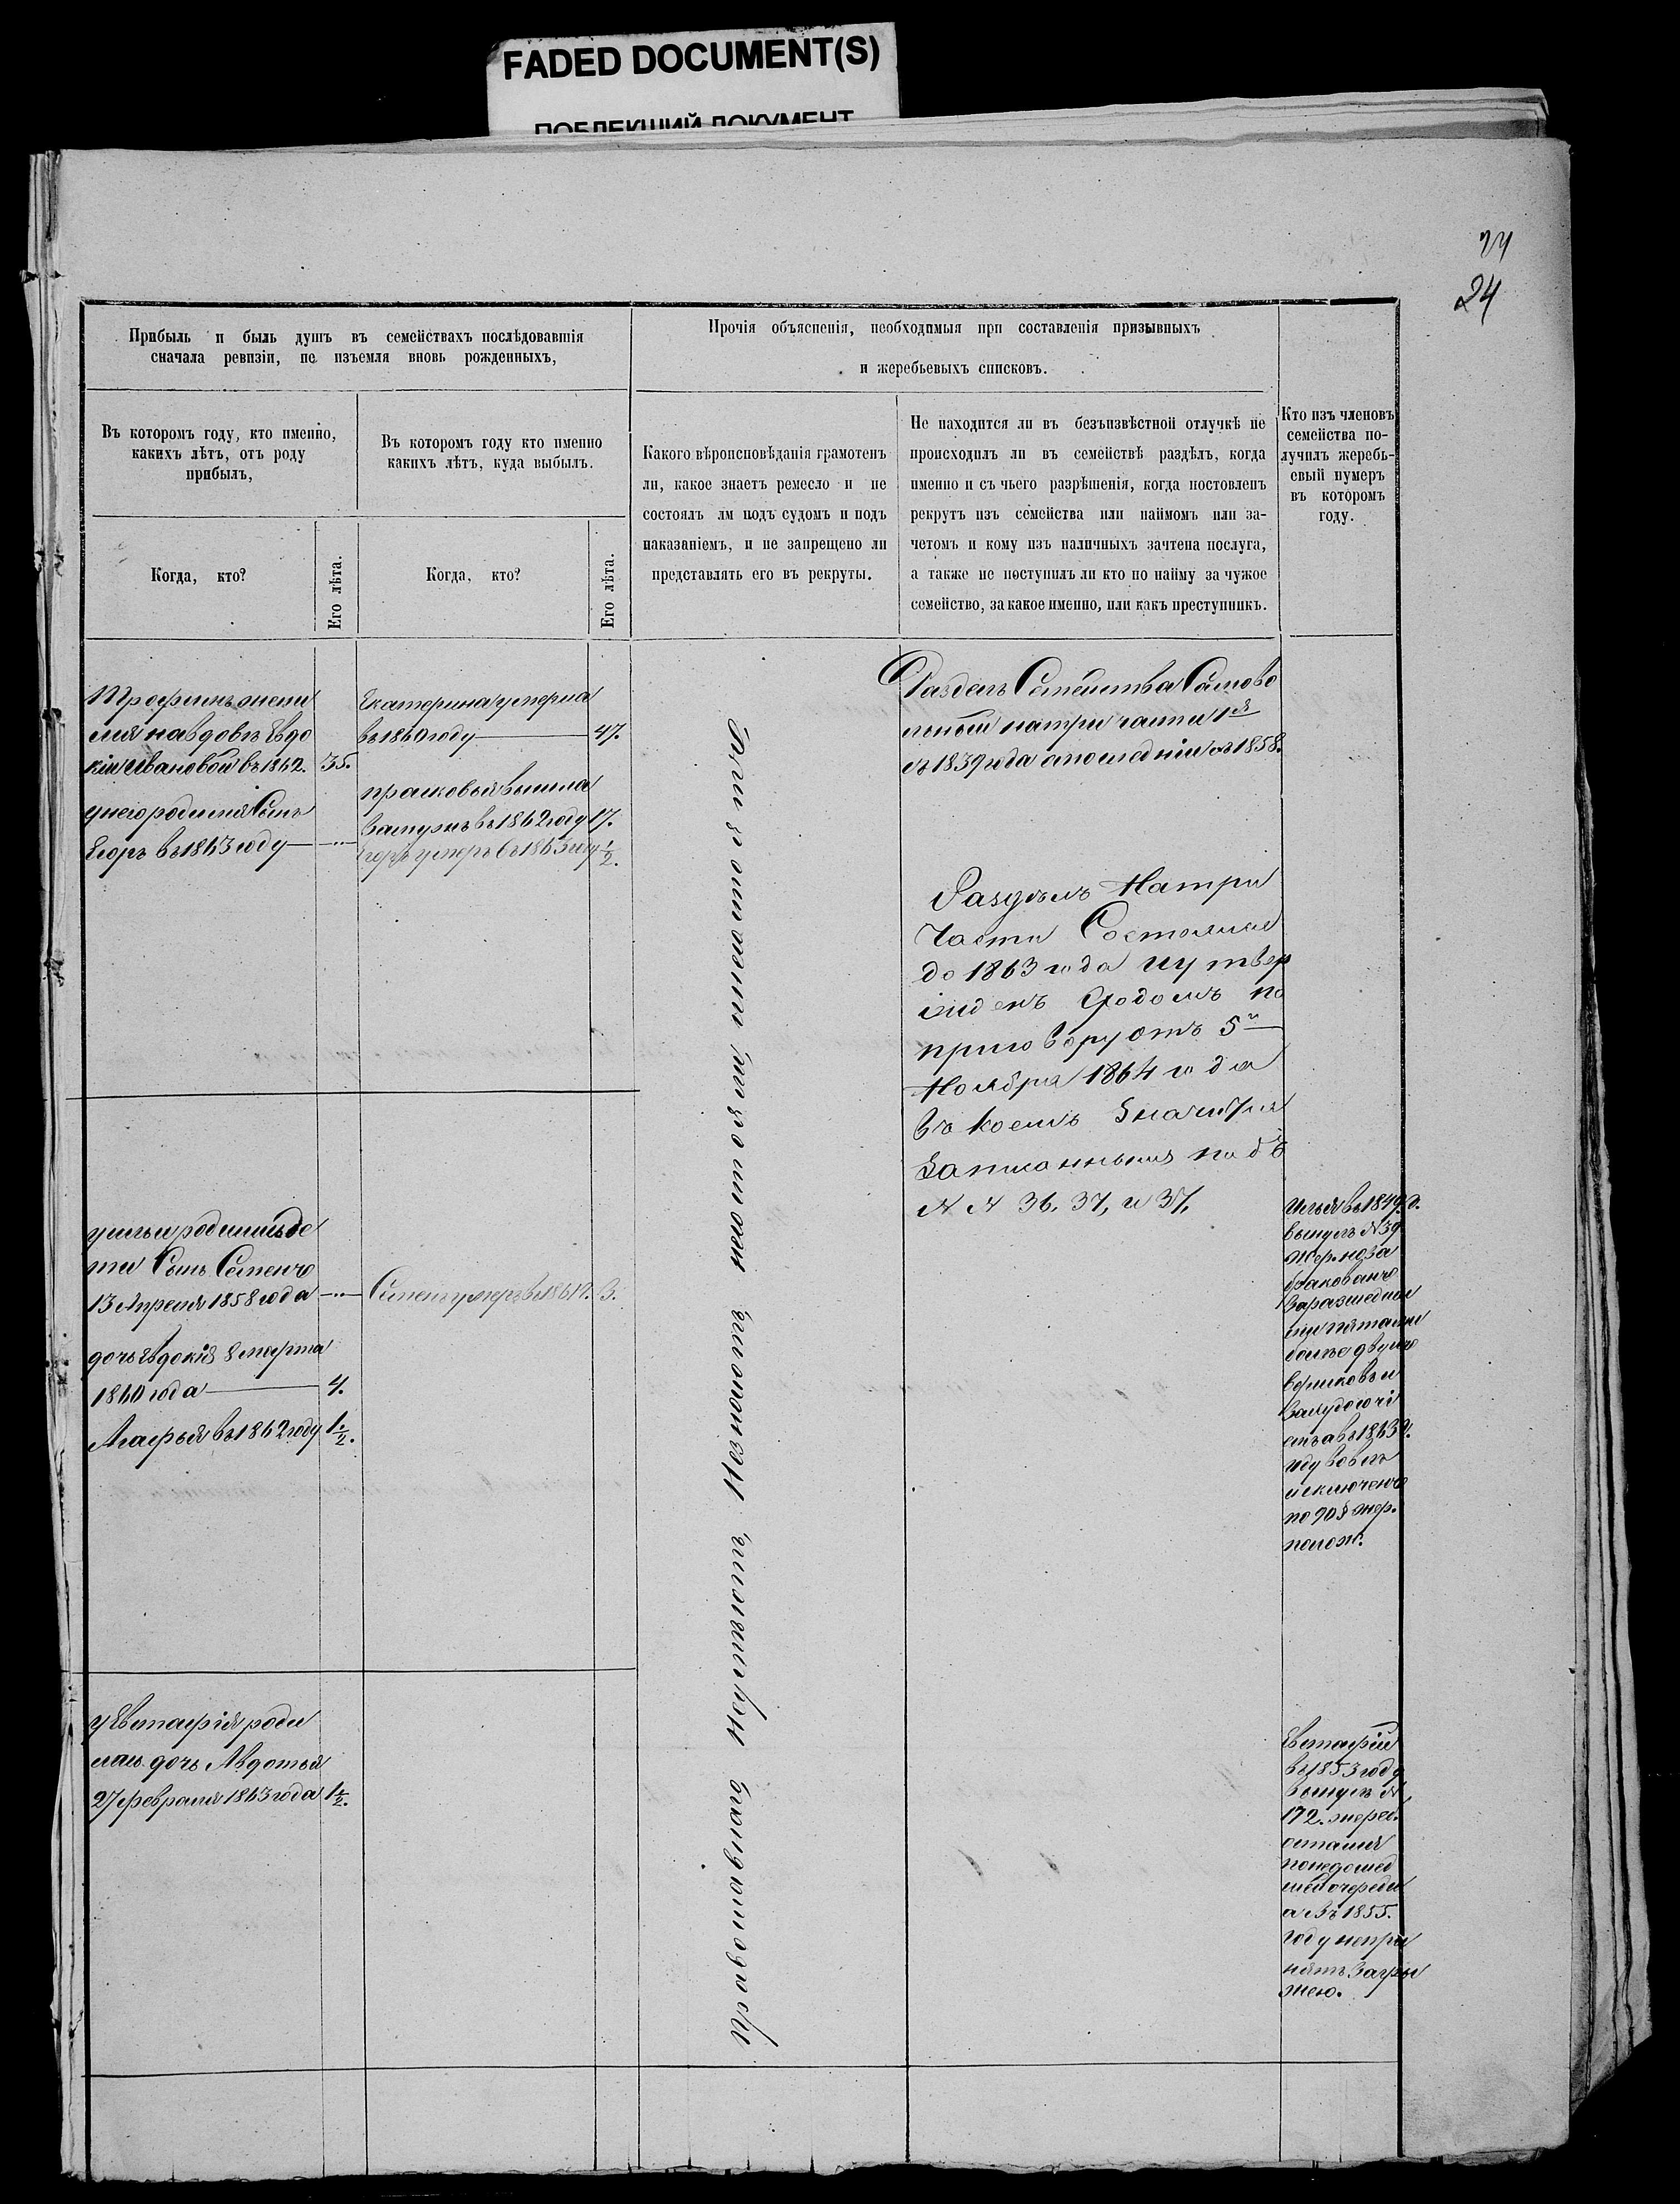 FADED DOCUMENT(S)
ПОБЛЕКШИЙ ДОКУМЕНТ
24
24
Прибыль и быль душъ въ семействахъ послѣдовавшія
сначала ревизіи, не изъемля вновь рожденныхъ,
Прочія объясненія, необходимыя при составленія призывныхъ
и жеребьевыхъ списковъ.
Въ которомъ году, кто именно,
какихъ лѣтъ, отъ роду
прибылъ,
Въ которомъ году кто именно
какихъ лѣтъ, куда выбылъ.
Какого вѣроисповѣданія грамотенъ
ли, какое знаетъ ремесло и не
состоялъ лм подъ судомъ и подъ
наказаніемъ, и не запрещено ли
представлять его въ рекруты.
Не находится ли въ безъизвѣстной отлучкѣ не
происходилъ ли въ семействѣ раздѣлъ, когда
именно и съ чьего разрѣшенія, когда поставленъ
рекрутъ изъ семейства или наймомъ или за-
четомъ и кому изъ наличныхъ зачтена послуга,
а также не поступилъ ли кто по найму за чужое
семейство, за какое именно, или какъ преступникъ.
Кто изъ членовъ
семейства по-
лучилъ жеребь-
евый нумеръ
въ которомъ
году.
Когда, кто?
Его лѣта.
Когда, кто?
Его лѣта.
Трофимъ жени
лся на вдовѣ Евдо
кіи Ивановой въ 1862. 35.
у него родился Сынъ
Егоръ въ 1863 году
Екатерина умерла
въ 1860 году 47.
прасковья вышла
взамужъ въ 1862 году 17.
Егоръ умеръ въ 1863 году 1/2.
Разделъ Семейства Самово
льный натри части 1й
съ 1839 года а последній съ 1858.
Разделъ Натри
Части Состоялся
до 1863 года и утвер
жденъ Сходомъ по
приговору отъ 5го
Ноября 1864 года
Въ коемъ Значутся
Записанныя подъ
N N 36, 37, и 37.
православнаго неумѣютъ, Незнаютъ несостояли
у ильи родились де
ти Сынъ Семенъ
13 Апреля 1858 года
дочь Евдокія 8 марта
1860 года 4.
Агафья въ 1862 году 1 1/2.
Семенъ умеръ въ 1861 г. 3.
Илья въ 1849 г.
вынулъ N 39
жер. но за
бракованъ
За
более двухъ
вершковъ и
За
а въ 1863 г.
году вовсе
исключенъ
по 90 § жер.
полож.
у Евстафія роди
лась дочь Авдотья
27 февраля 1863 года 1 1/2.
Евстафій
въ 1853 году
вынулъ N
172. жереб.
остался
понедошед
шей очереди
а въ 1855.
году непри
нятъ За гры
жею.